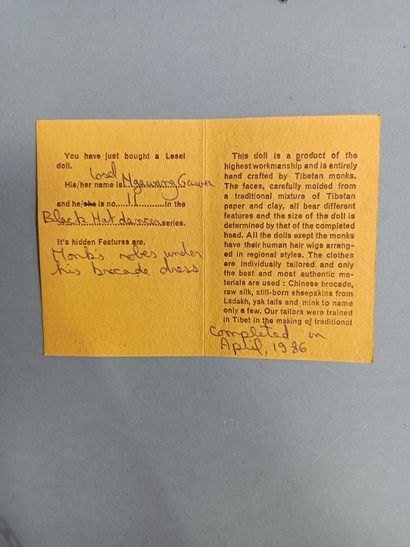 You have just bought a Lesel
doll.
Losel
His/her name is Ngawang Gawa
and he/she is no. 11 in the
Black Hat dancer series.
It's hidden Features are.
Monk's robes under
his brocade dress
This doll is a product of the
highest workmanship and is entirely
hand crafted by Tibetan monks.
The faces, carefully molded from
a traditional mixture of Tibetan
paper and clay, all bear different
features and the size of the doll is
determined by that of the completed
head. All the dolls exept the monks
have their human hair wigs arrang-
ed in regional styles. The clothes
are individually tailored and only
the best and most authentic ma-
terials are used : Chinese brocade,
raw silk, still-born sheepskins from
Ladakh, yak tails and mink to name
only a few. Our tailors were trained
in Tibet in the making of traditional
completed in
April, 1986.